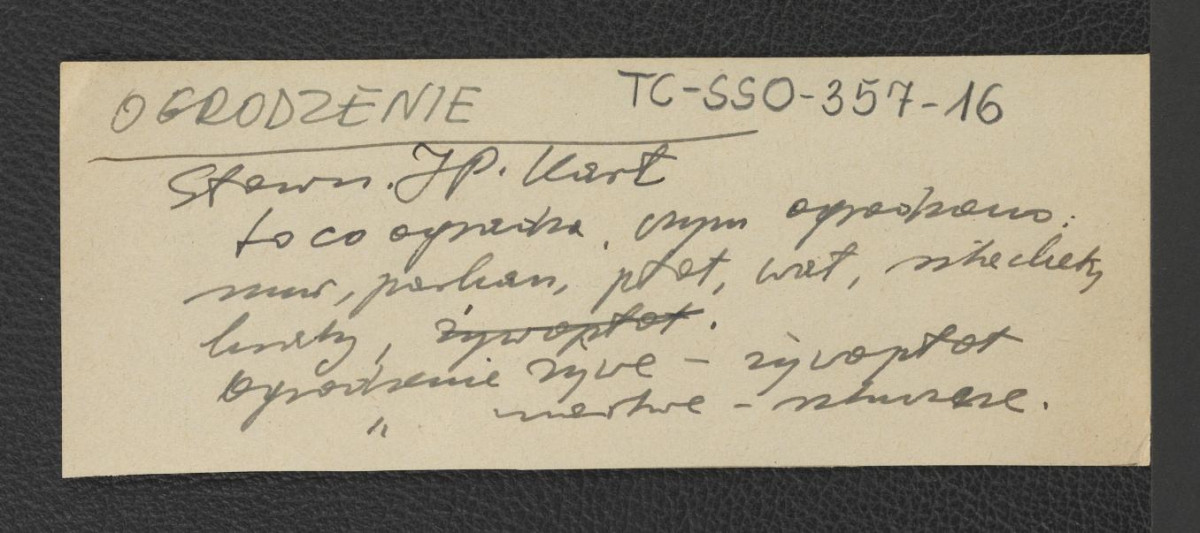 OGRODZENIE TC-SSO-357-16
Słown. JP. Karł
to co ogradza, czym ogrodzono:
mur, parkan, płot, wał, sztachety
kraty, żywopłot.
Ogrodzenie żywe – żywopłot
" martwe – sztuczne.